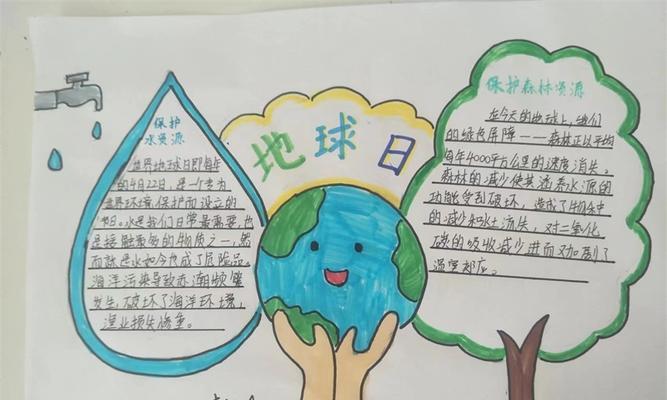 地球日
保护
水资源
世界地球日即每年
的4月22日，是一个专为
世界环境保护而设立的
节日。水是我们日常最需要，也
是接触最多的物质之一，然
而就是水如今也成了危险品。
海洋污染导致赤潮频繁
发生，破坏了海洋环境，
渔业损失惨重。
保护森林资源
在今天的地球上，我们
的绿色屏障——森林正以平均
每年4000平方公里的速度消失。
森林的减少使其涵养水源的
功能受到破坏，造成了物种
的减少和水土流失，对二氧化
碳的吸收减少进而又加剧了
温室效应。